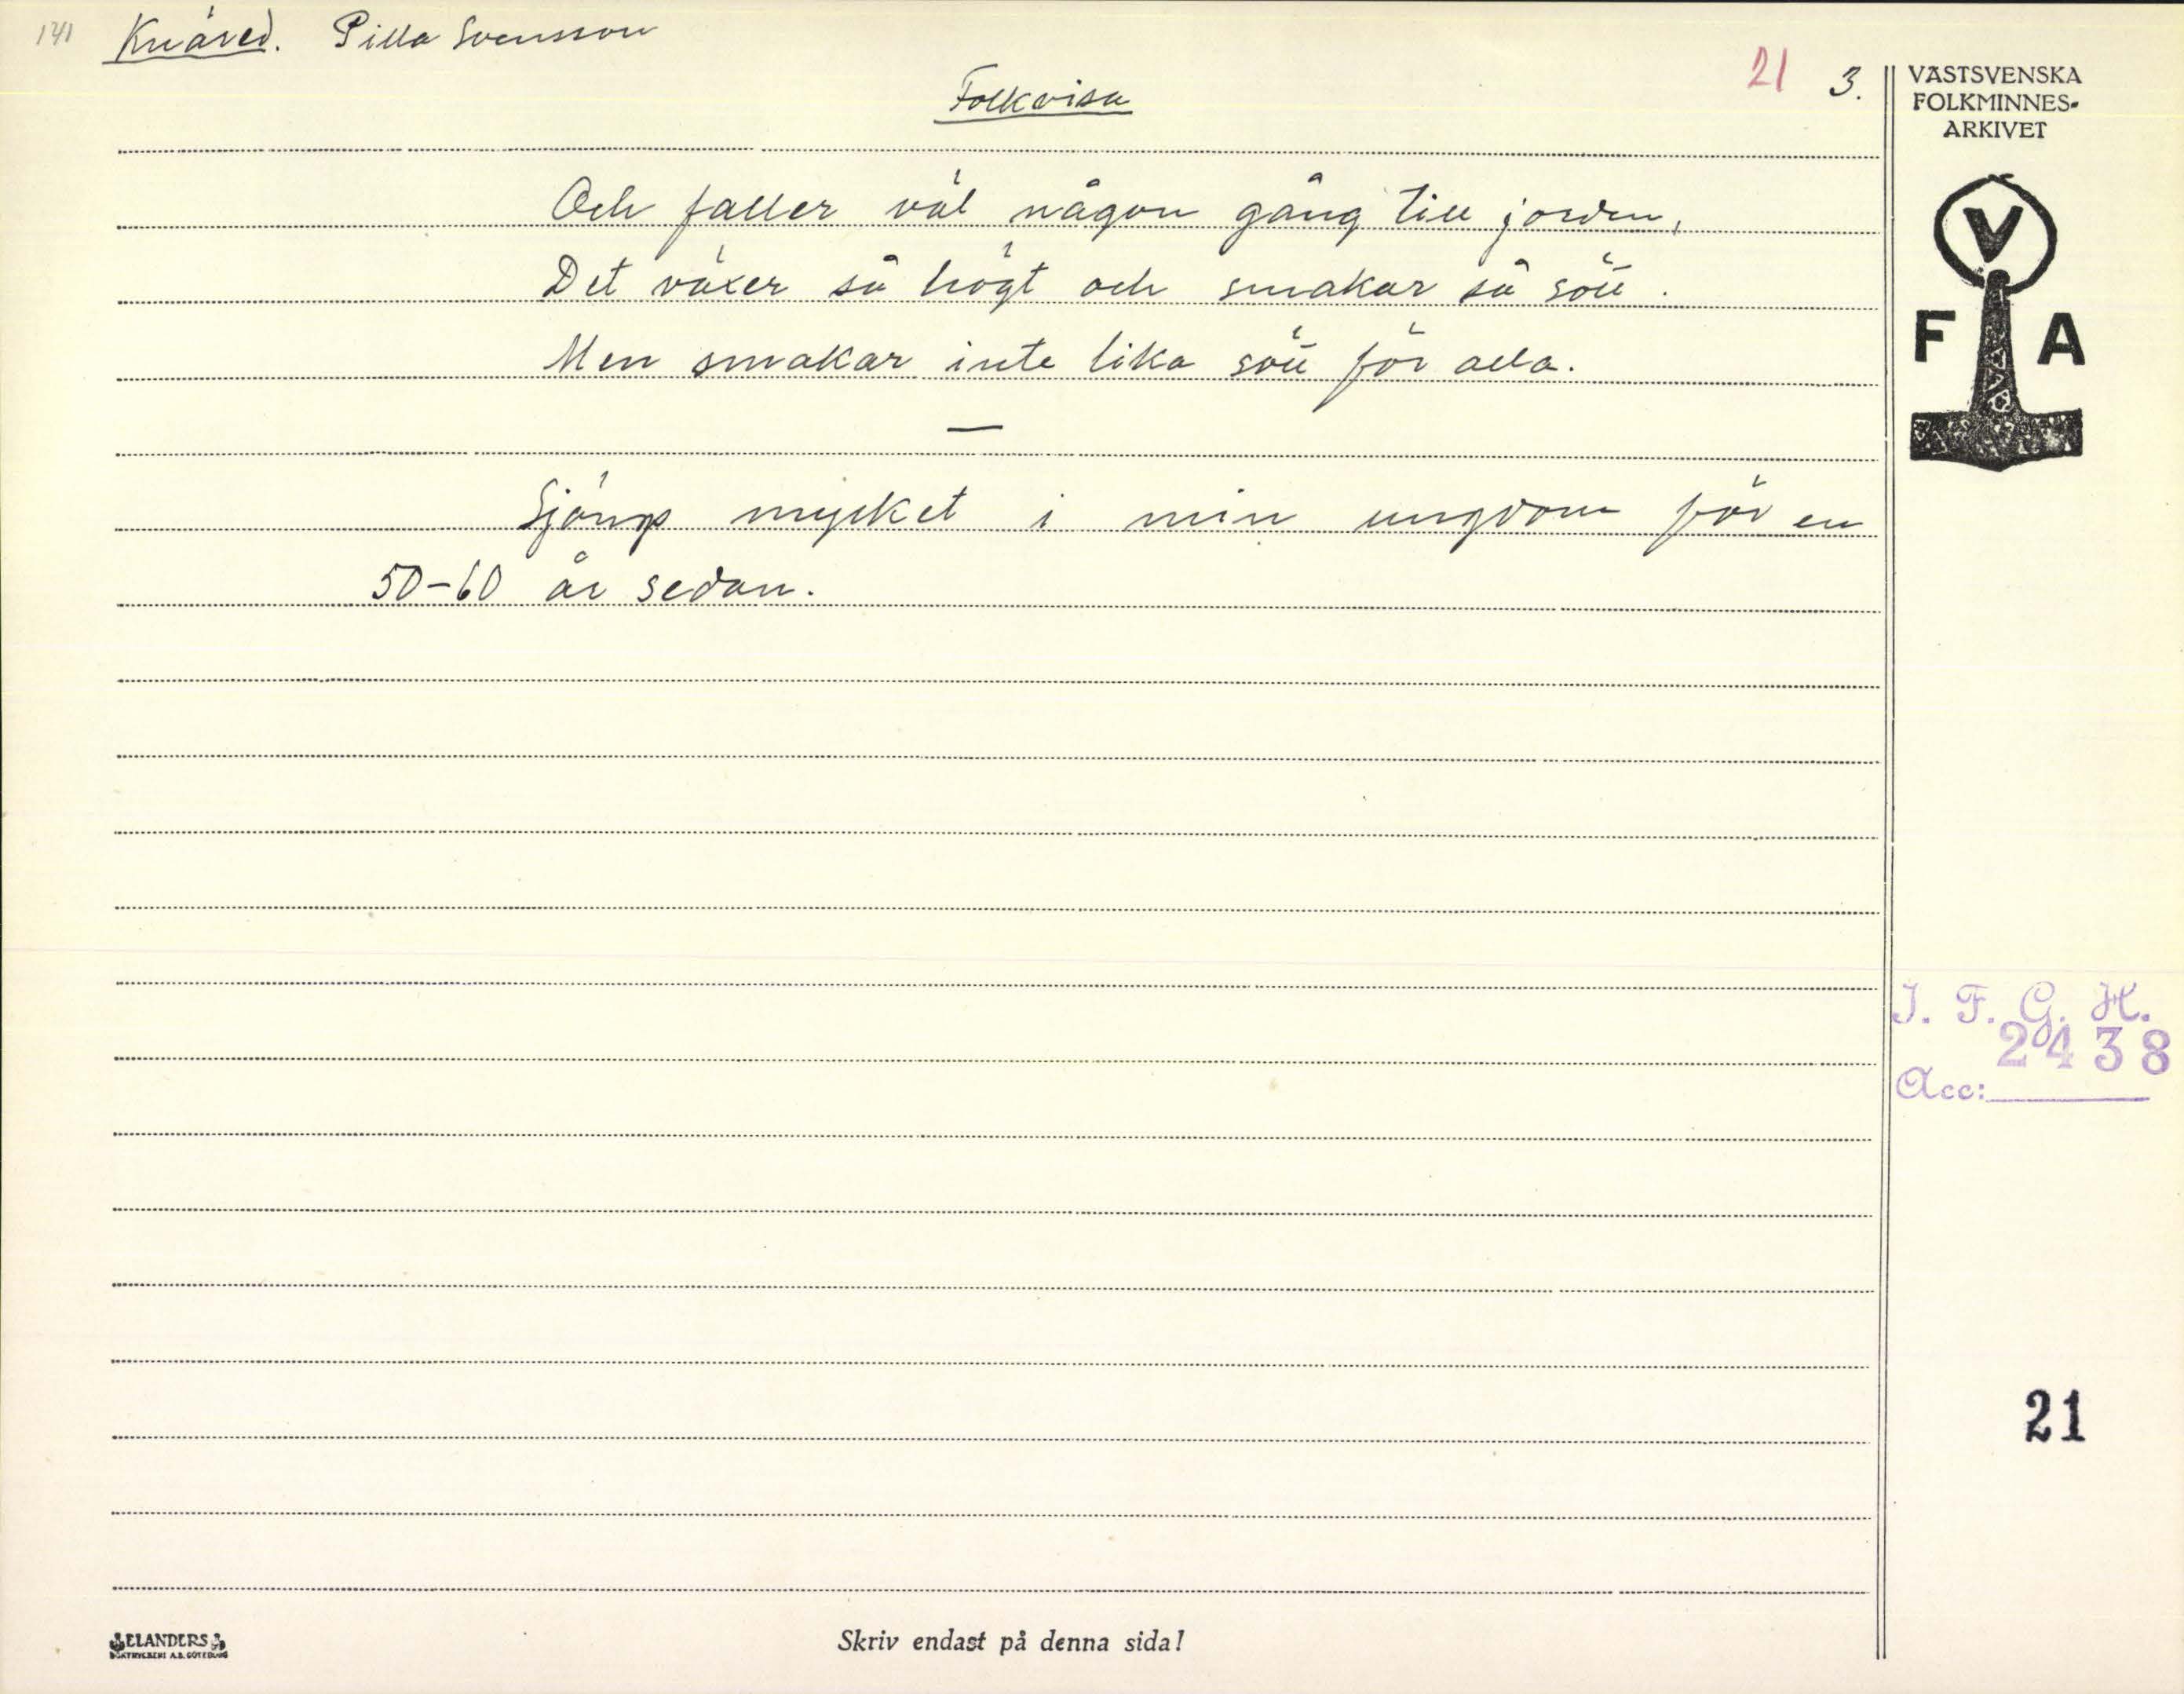 141 Knäred. Pilla Svensson
21 3.
Folkvisa
Och faller väl någon gång till jorden,
Det växer så högt och smakar så sött.
Men smakar inte lika sött för alla.
—
Sjöngs mycket i min ungdom för en
50-60 år sedan.
VÄSTSVENSKA
FOLKMINNES-
ARKIVET
V
F A
I. F. G. H.
2438
Acc:
21
ELANDERS
BOKTRYCKERI A.B. GÖTEBORG
Skriv endast på denna sida!